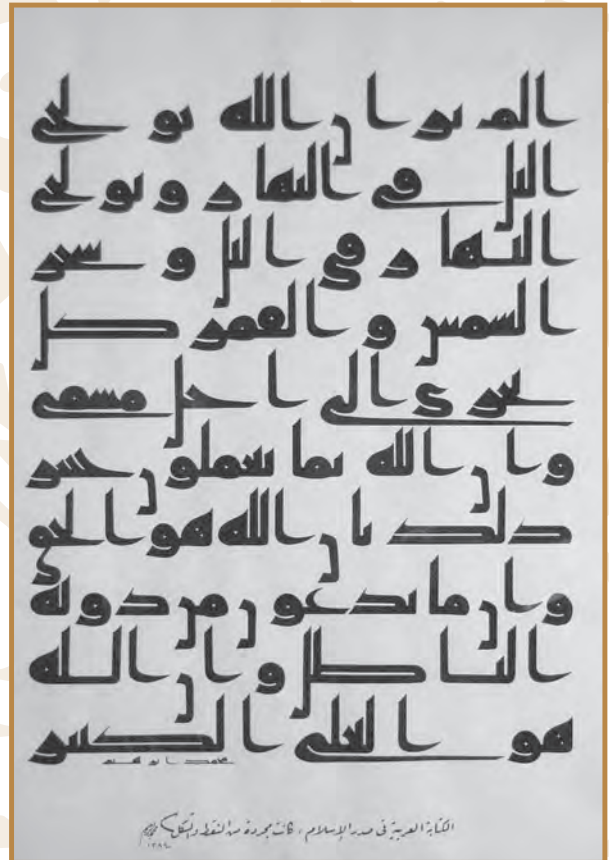 الم تر ان الله يولج
اليل في النهار ويولج
النهار في اليل وسخر
الشمس والقمر كل
يجرى الى اجل مسمى
وان الله بما تعملون خبير
ذلك بان الله هو الحق
وان ما يدعون من دونه
الباطل وان الله
هو العلى الكبير
محمد
الكتابة العربية في صدر الإسلام ، كانت مجردة من النقط والشكل